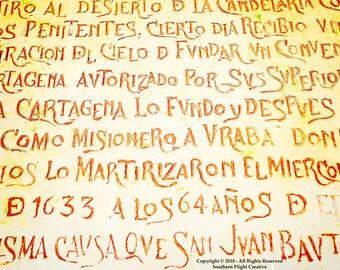 TIRO AL DESIERTO D LA CANDELARIA CO
OS PENITENTES, CIERTO DIA RECIBIO VN
IRACION DL CIELO D FVNDAR VN CONVEN
RTAGENA AVTORIZADO POR SVS SVPERIO
A CARTAGENA LO FVNDO y DESPVES
COMO MISIONERO A VRABA DON
IOS LO MARTIRIZARON EL MIERCO
D 1633 A LOS 64 AÑOS D
ISMA CAVSA QVE SAN JVAN BAVT
Copyright © 2018 - All Rights Reserved
Southern Flight Creative